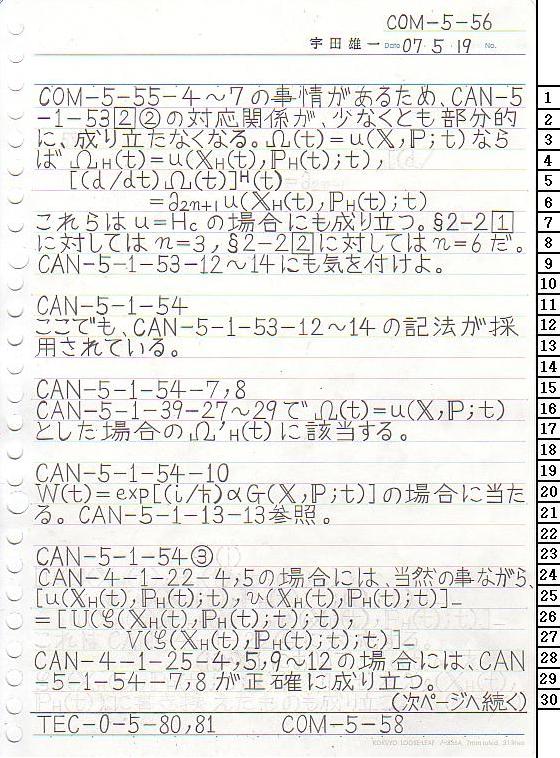 COM-5-56
宇田雄一 Date 07・5・19 No.
COM-5-55-4～7の事情があるため、CAN-5
-1-53[2]②の対応関係が、少なくとも部分的
に、成り立たなくなる。Ω(t)=u(𝕏,ℙ;t)なら
ば Ω_H(t)=u(𝕏_H(t),ℙ_H(t);t),
[(d/dt)Ω(t)]^H(t)
=∂_{2n+1}u(𝕏_H(t),ℙ_H(t);t)
これらは u=Hc の場合にも成り立つ。§2-2[1]
に対しては n=3, §2-2[2]に対しては n=6 だ。
CAN-5-1-53-12～14にも気を付けよ。
CAN-5-1-54
ここでも、CAN-5-1-53-12～14の記法が採
用されている。
CAN-5-1-54-7,8
CAN-5-1-39-27～29で Ω(t)=u(𝕏,ℙ;t)
とした場合のΩ'_H(t)に該当する。
CAN-5-1-54-10
W(t)=exp[(i/ħ)αG(𝕏,ℙ;t)]の場合に当た
る。CAN-5-1-13-13参照。
CAN-5-1-54③
CAN-4-1-22-4,5の場合には、当然の事ながら、
[u(𝕏_H(t),ℙ_H(t);t),v(𝕏_H(t),ℙ_H(t);t)]_
=[U(φ(𝕏_H(t),ℙ_H(t);t);t),
V(φ(𝕏_H(t),ℙ_H(t);t);t)]_
CAN-4-1-25-4,5,9～12の場合には、CAN
-5-1-54-7,8が正確に成り立つ。
(次ページへ続く)
TEC-0-5-80,81 COM-5-58
KOKUYO LOOSE-LEAF 7mm ruled, 31 lines
1
2
3
4
5
6
7
8
9
10
11
12
13
14
15
16
17
18
19
20
21
22
23
24
25
26
27
28
29
30